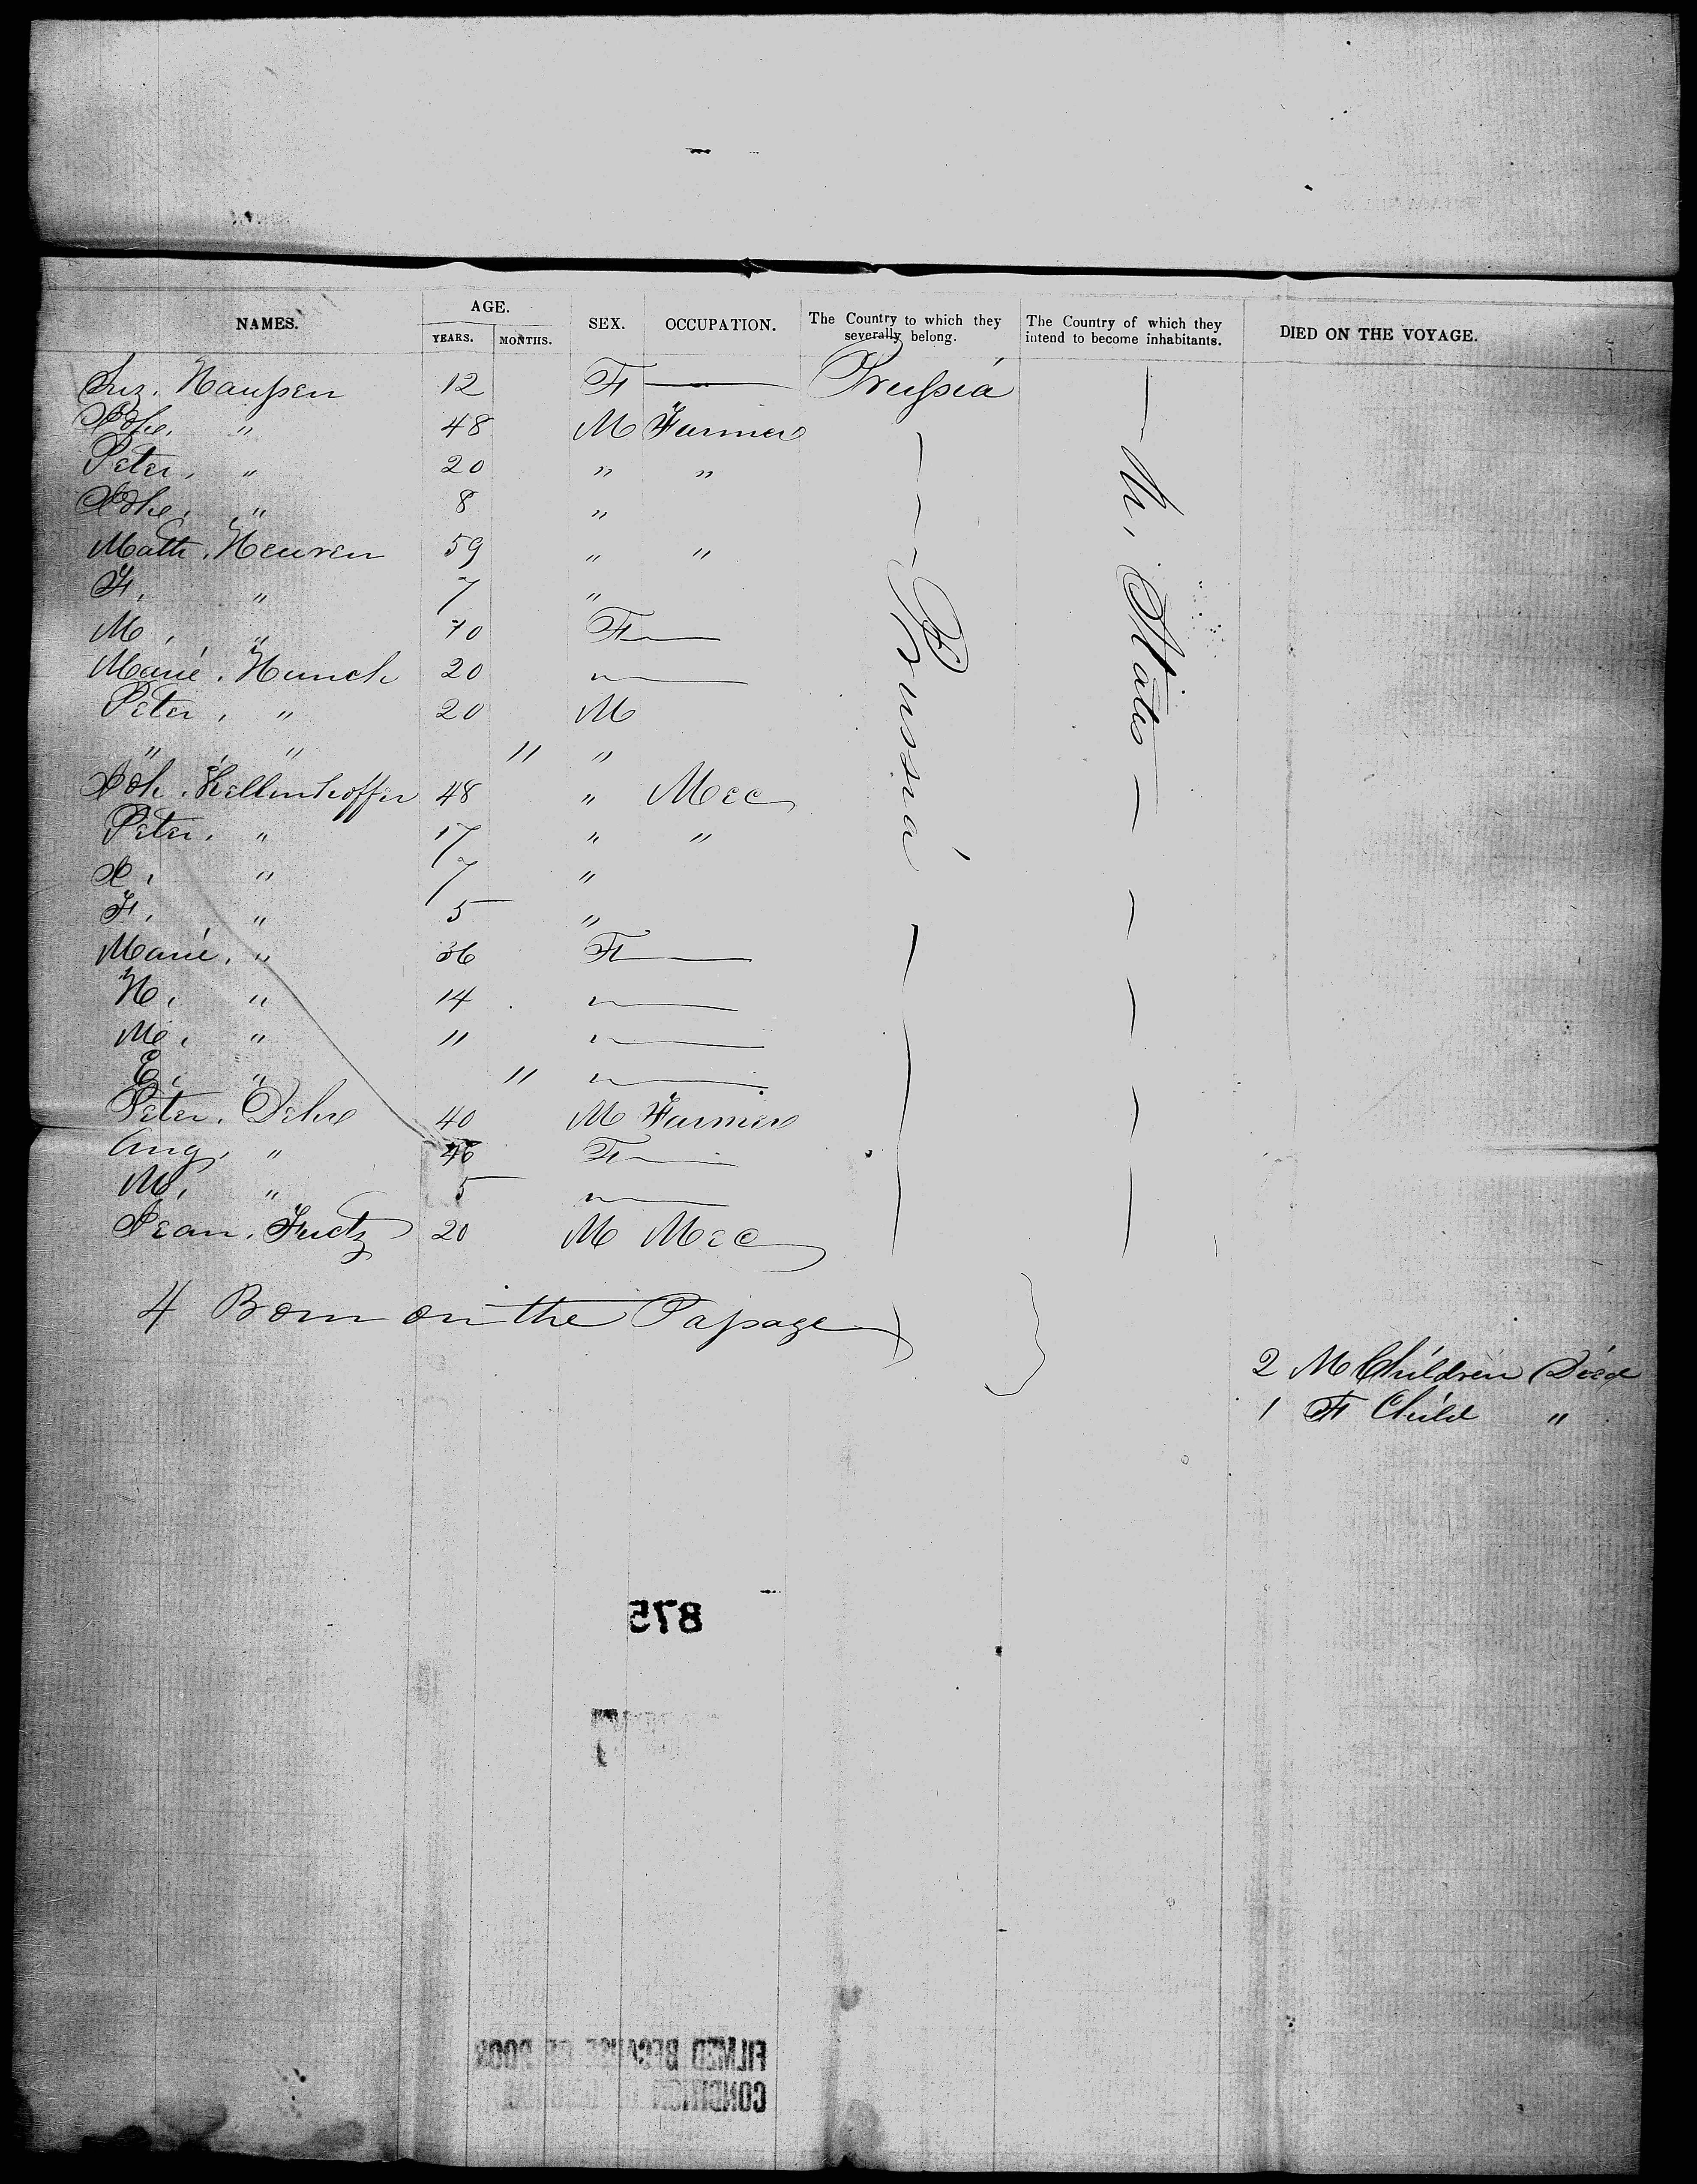 NAMES. AGE. SEX. OCCUPATION. The Country to which they severally belong. The Country of which they intend to become inhabitants. DIED ON THE VOYAGE.
YEARS. MONTHS.
Suz. Haußen 12 F — Preußia
Joh. " 48 M Farmer
Peter, " 20 " "
Joh. " 8 "
Math. Heuren 59 " "
F. " 7 "
M. " 10 F —
Marie. Hunch 20 " —
Peter, " 20 M
" " 11 "
Joh. Kellenhoffer 48 " Mec
Peter. " 17 " "
J. " 7 "
F. " 5 "
Marie. " 36 F —
H. " 14 " —
M. " 11 " —
E. " 11 " —
Peter. Dehe 40 M Farmer
Ang. " 46 F —
M. " 5 " —
Jean. Fuctz 20 M Mec
Prussia
Un. States
4 Born on the Paßage
2 M Children Died
1 F Child "
875
FILMED BECAUSE OF POOR
CONDITION